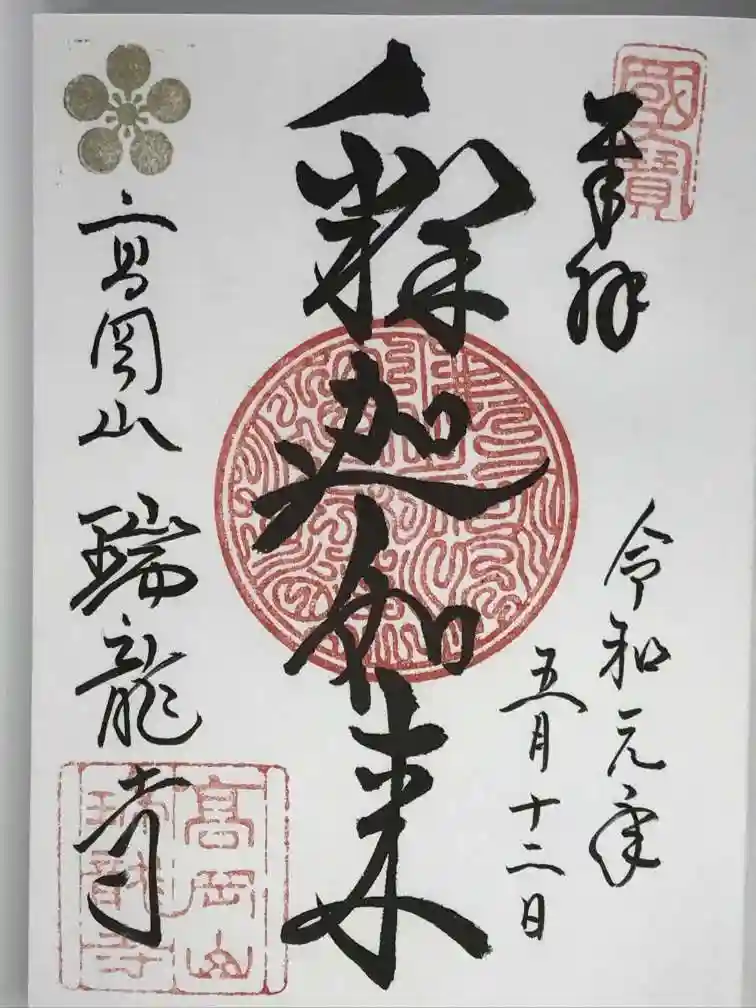 國寶
奉拝
令和元年
五月十二日
釋迦如来
高岡山
瑞龍寺
高岡山
瑞龍寺